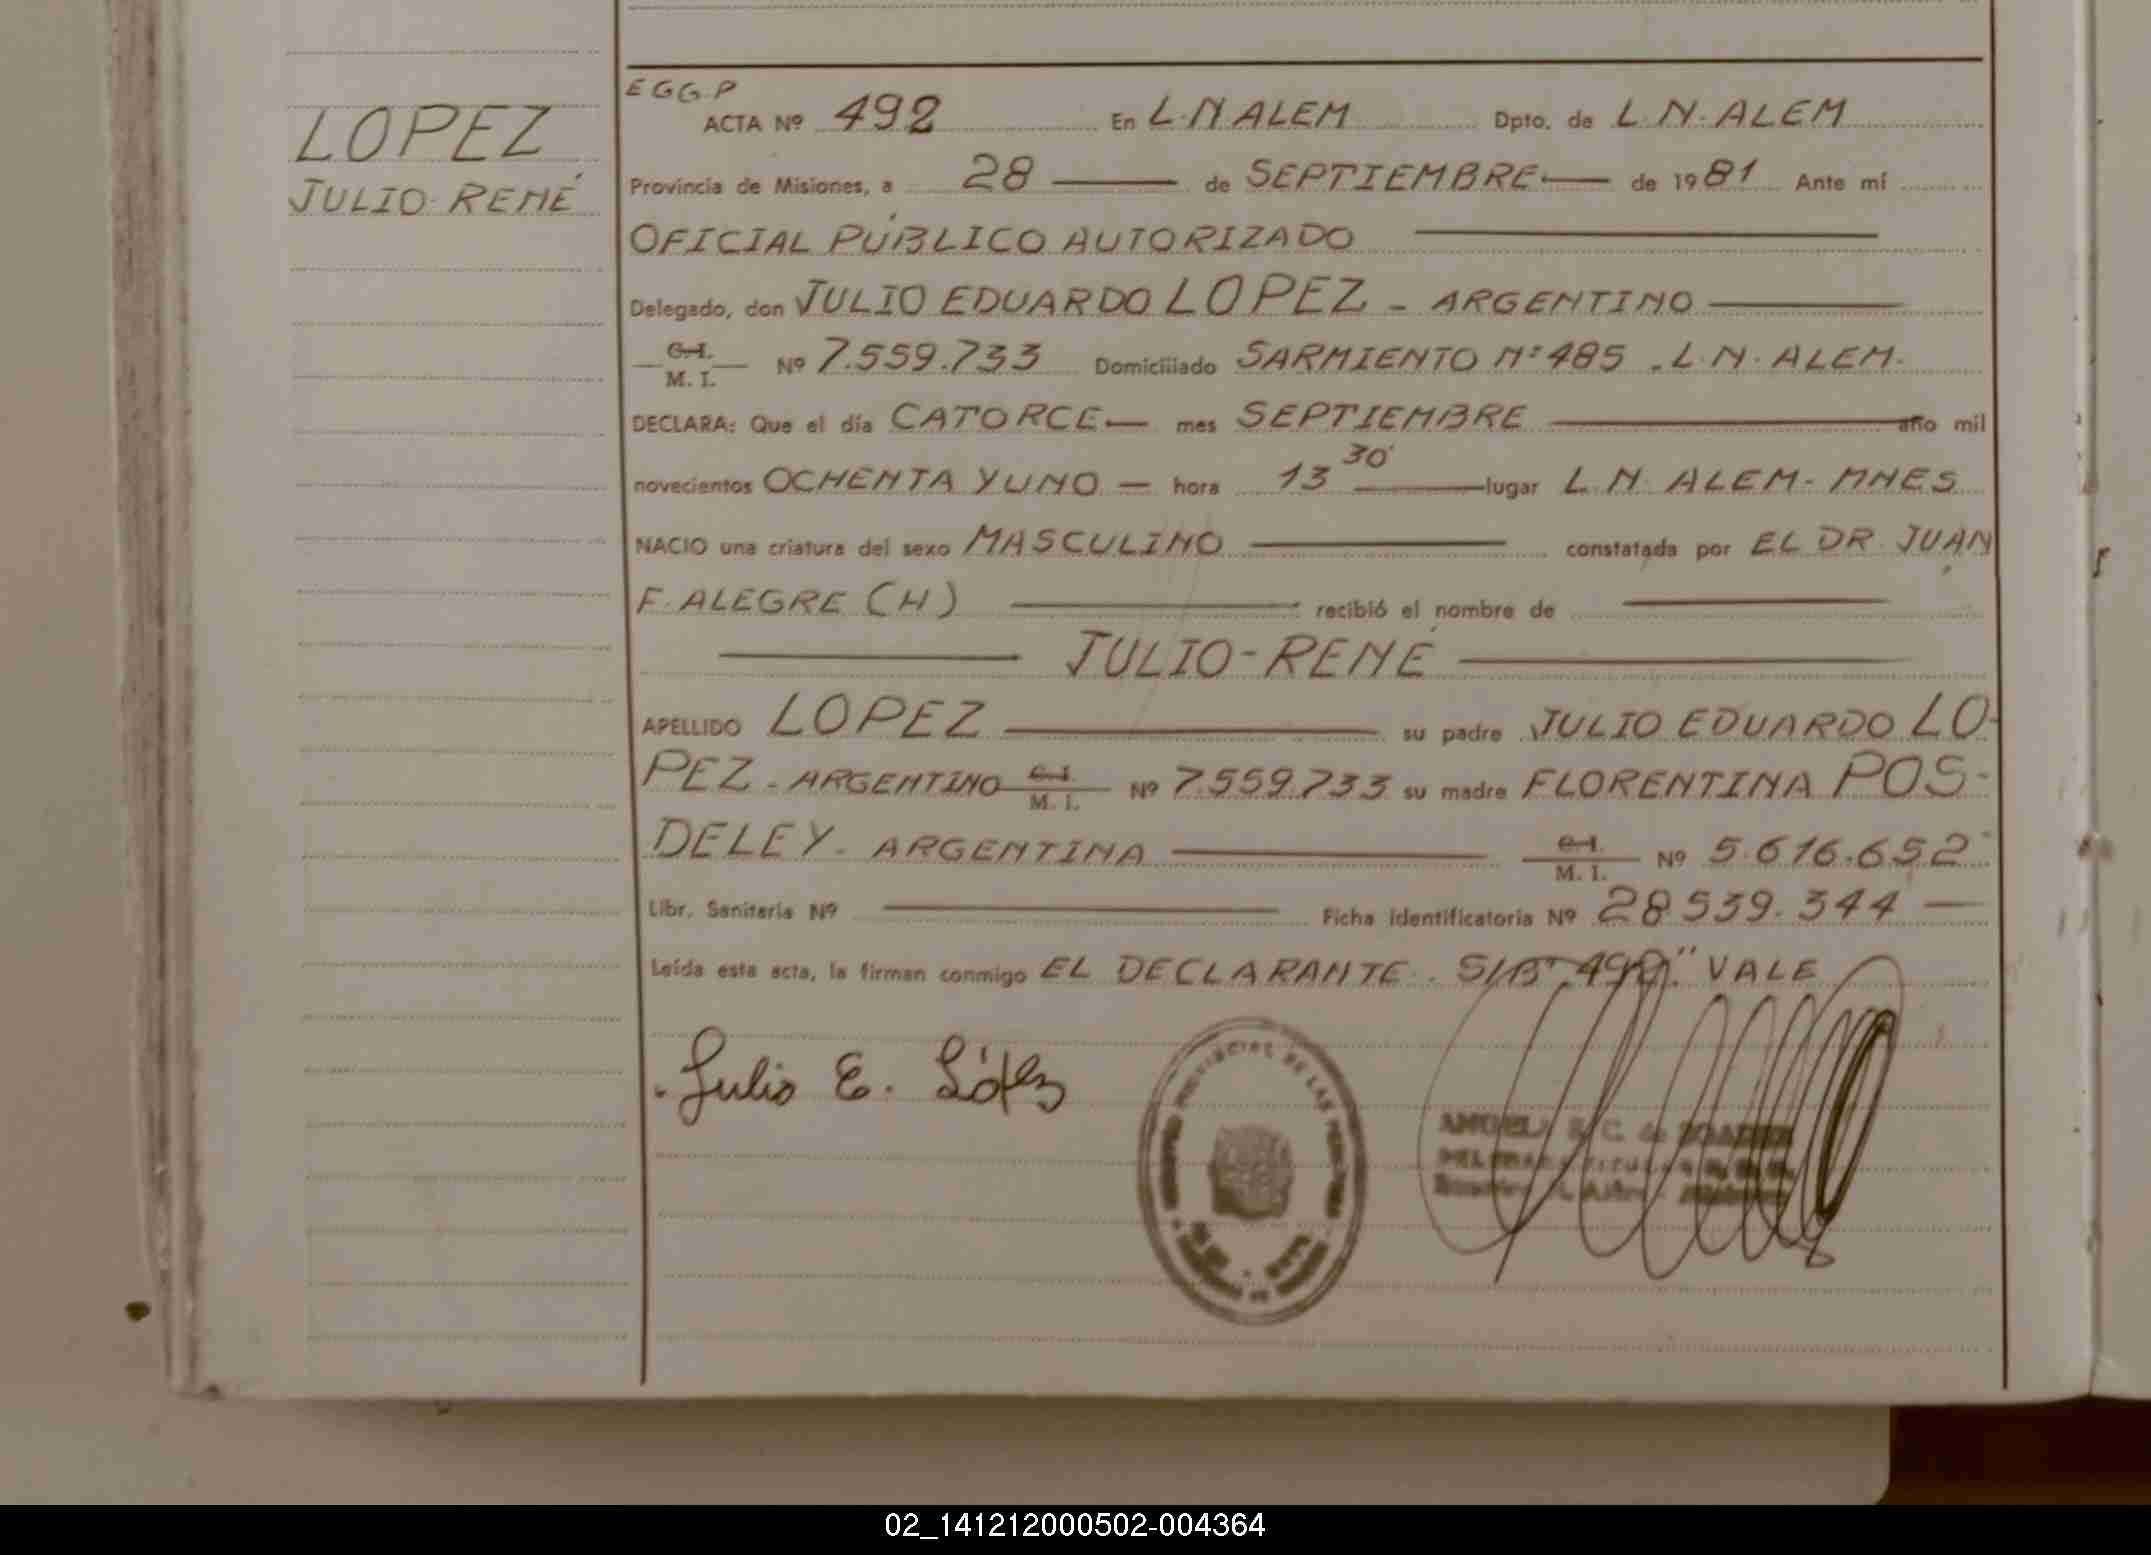 LOPEZ
JULIO-RENÉ
EGG.P
ACTA Nº 492 En L.N ALEM Dpto. de L.N.ALEM
Provincia de Misiones, a 28 de SEPTIEMBRE de 1981 Ante mí
OFICIAL PÚBLICO AUTORIZADO
Delegado, don JULIO EDUARDO LOPEZ - ARGENTINO
C.I.
M. I. Nº 7.559.733 Domiciliado SARMIENTO Nº 485 . L.N. ALEM.
DECLARA: Que el día CATORCE mes SEPTIEMBRE año mil
novecientos OCHENTA Y UNO - hora 13 30' lugar L.N. ALEM-MNES
NACIO una criatura del sexo MASCULINO constatada por EL DR. JUAN
F. ALEGRE (H) recibió el nombre de
JULIO-RENÉ
APELLIDO LOPEZ su padre JULIO EDUARDO LO-
PEZ - ARGENTINO C.I. M. I. Nº 7.559.733 su madre FLORENTINA POS-
DELEY - ARGENTINA C.I. M. I. Nº 5.616.652
Libr. Sanitaria Nº Ficha identificatoria Nº 28.539.344
Leída esta acta, la firman conmigo EL DECLARANTE. S/B "492" VALE
Julio E. López
PROVINCIAL DE LAS PERSONAS
02_141212000502-004364